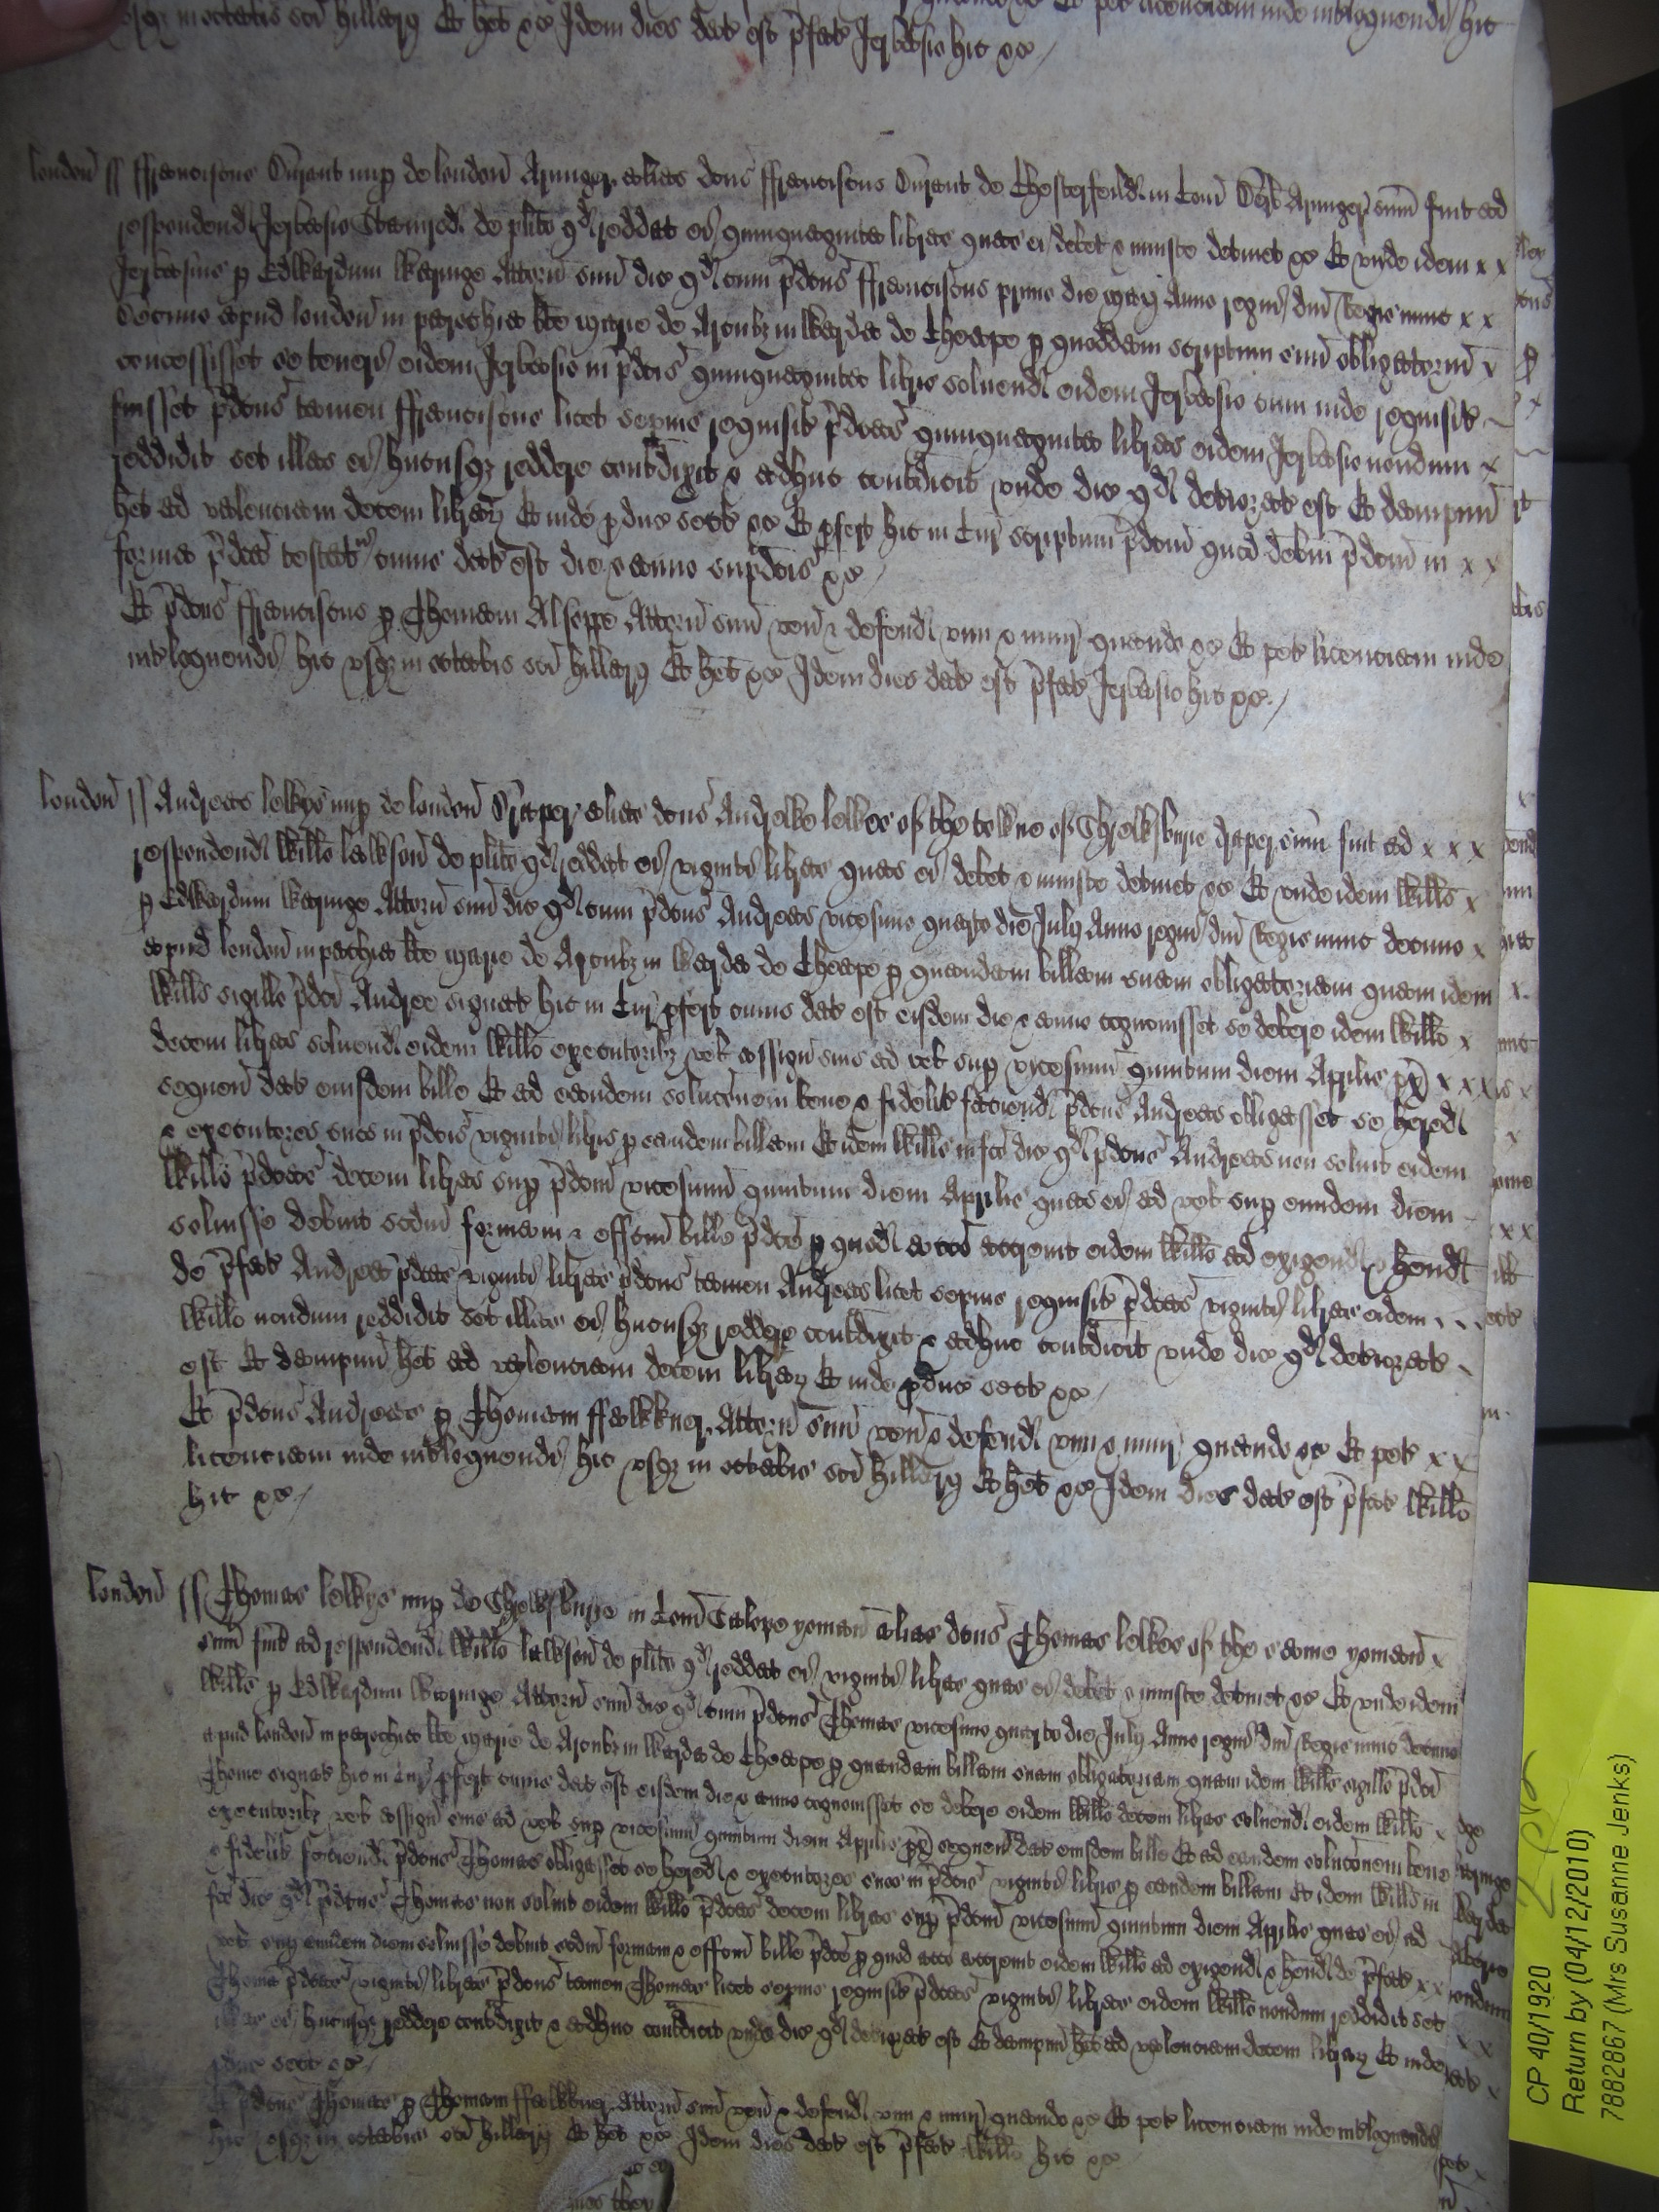 usqz in octabis sci Hillarij Et het &c Idem dies dat est p̄fat Jervasio hic &c
London ss ffranciscus Durant nup de London Armiger alias dcus ffranciscus Durant de Chesterfeild in Com Derb Armiger sum fuit ad
respondend Jervasio de plito qd reddat ei quinquaginta libras quas ei debet & iniuste detinet &c Et unde idem x x
Jervasius p Edwardum Waringe Attorn suu dic qd cum p̄dcus ffranciscus primo die Maij Anno regni dni Regis nunc x x
decimo apud London in parochia be Marie de Arcubz in Warda de Cheape p quoddam scriptum suu obligatoriu x
concessisset se teneri eidem Jervasio in p̄dcis quinquaginta libris solvend eidem Jervasio cum inde requisit
fuisset p̄dcus tamen ffranciscus licet sepius requisit p̄dcas quinquaginta libras eidem Jervasio nondum x
reddidit set illas ei hucusqz reddere contdixit & adhuc contdicit unde dic qd deteriorat est Et dampnu
het ad valenciam decem librarz Et inde pduc sect &c Et pfert hic in Cur scriptum p̄dcm quod debm p̄dcm in x x
forma p̄dca testat cuius dat est die & anno supdcis &c
Et p̄dcus ffranciscus p Thomam Alsoppe Attorn suu ven & defend vim & iniur quando &c Et pet licenciam inde
intloquendi hic usqz in octabis sci Hillarij Et het &c Idem dies dat est p̄fat Jervasio hic &c
London ss Andreas lewkys nup de London Draper alias dcus Andrewe lewkes of the towne of Shrewsburie draper sum fuit ad x x x
respondend Willo lawson de plito qd reddat ei viginti libras quas ei debet & iniuste detinet &c Et unde idem Willus x
p Edwardum Waringe Attorn suu dic qd cum p̄dcus Andreas vicesimo quarto die Julij Anno regni dni Regis nunc decimo x
apud London in pachia be Marie de Arcubz in Warda de Cheape p quandam billam suam obligatoriam quam idem
Willus sigillo p̄dci Andree signat hic in Cur pfert cuius dat est eisdem die & anno cognovisset se debere eidem Willo x
decem libras solvend eidem Willo executoribz vel assign suis ad vel sup vicesimu quintum diem Aprilis px x x x
sequen dat eiusdem bille Et ad eandem solucionem bene & fidelit faciend p̄dcus Andreas obligasset se hered
& executores suos in p̄dcis viginti libris p eandem billam Et idem Willus in fco dic qd p̄dcus Andreas non solvit eidem
Willo p̄dcas decem libras sup p̄dcm vicesimu quintum diem Aprilis quas ei ad vel sup eundem diem
solvisse debuit scdm formam & effcm bille p̄dce p quod acco accrevit eidem Willo ad exigend & hend
de p̄fat Andrea p̄dcas viginti libras p̄dcus tamen Andreas licet sepius requisit p̄dcas viginti libras eidem
Willo nondum reddidit set illas ei hucusqz reddere contdixit & adhuc contdicit unde dic qd deteriorat
est Et dampnu het ad valenciam decem librarz Et inde pduc sect &c
Et p̄dcus Andreas p Thomam ffawkkner Attorn suu ven & defend vim & iniur quando &c Et pet x x
licenciam inde intloquendi hic usqz in octabis sci Hillarij Et het &c Idem dies dat est p̄fat Willo
hic &c
London ss Thomas lewkys nup de Shrewsburie in Com Salope yoman alias dcus Thomas lewkes of the same yoman x
sum fuit ad respondend Willo lawson de plito qd reddat ei viginti libras quas ei debet & iniuste detinet &c Et unde idem
Willus p Edwardum Waringe Attorn suu dic qd cum p̄dcus Thomas vicesimo quarto die Julij Anno regni dni Regis nunc decimo
apud London in parochia be Marie de Arcubz in Warda de Cheape p quandam billam suam obligatoriam quam idem Willus sigillo p̄dci
Thome signat hic in Cur pfert cuius dat est eisdem die & anno cognovisset se debere eidem Willo decem libras solvend eidem Willo x
executoribz vel assign suis ad vel sup vicesimu quintum diem Aprilis px sequen dat eiusdem bille Et ad eandem solucionem bene
& fidelit faciend p̄dcus Thomas obligasset se hered & executores suos in p̄dcis viginti libris p eandem billam Et idem Willus in
fco dic qd p̄dcus Thomas non solvit eidem Willo p̄dcas decem libras sup p̄dcm vicesimu quintum diem Aprilis quas ei ad
vel sup eundem diem solvisse debuit scdm formam & effcm bille p̄dce p quod acco accrevit eidem Willo ad exigend & hend de p̄fat x x
Thoma p̄dcas viginti libras p̄dcus tamen Thomas licet sepius requisit p̄dcas viginti libras eidem Willo nondum reddidit set
illas ei hucusqz reddere contdixit & adhuc contdicit unde dic qd deteriorat est Et dampnu het ad valenciam decem librarz Et inde
pduc sect &c
Et p̄dcus Thomas p Thomam ffawkkner Attorn suu ven & defend vim & iniur quando &c Et pet licenciam inde intloquendi
hic usqz in octabis sci Hillarij Et het &c Idem dies dat est p̄fat Willo hic &c
CP 40/1920
Return by (04/12/2010)
7882867 (Mrs Susanne Jenks)